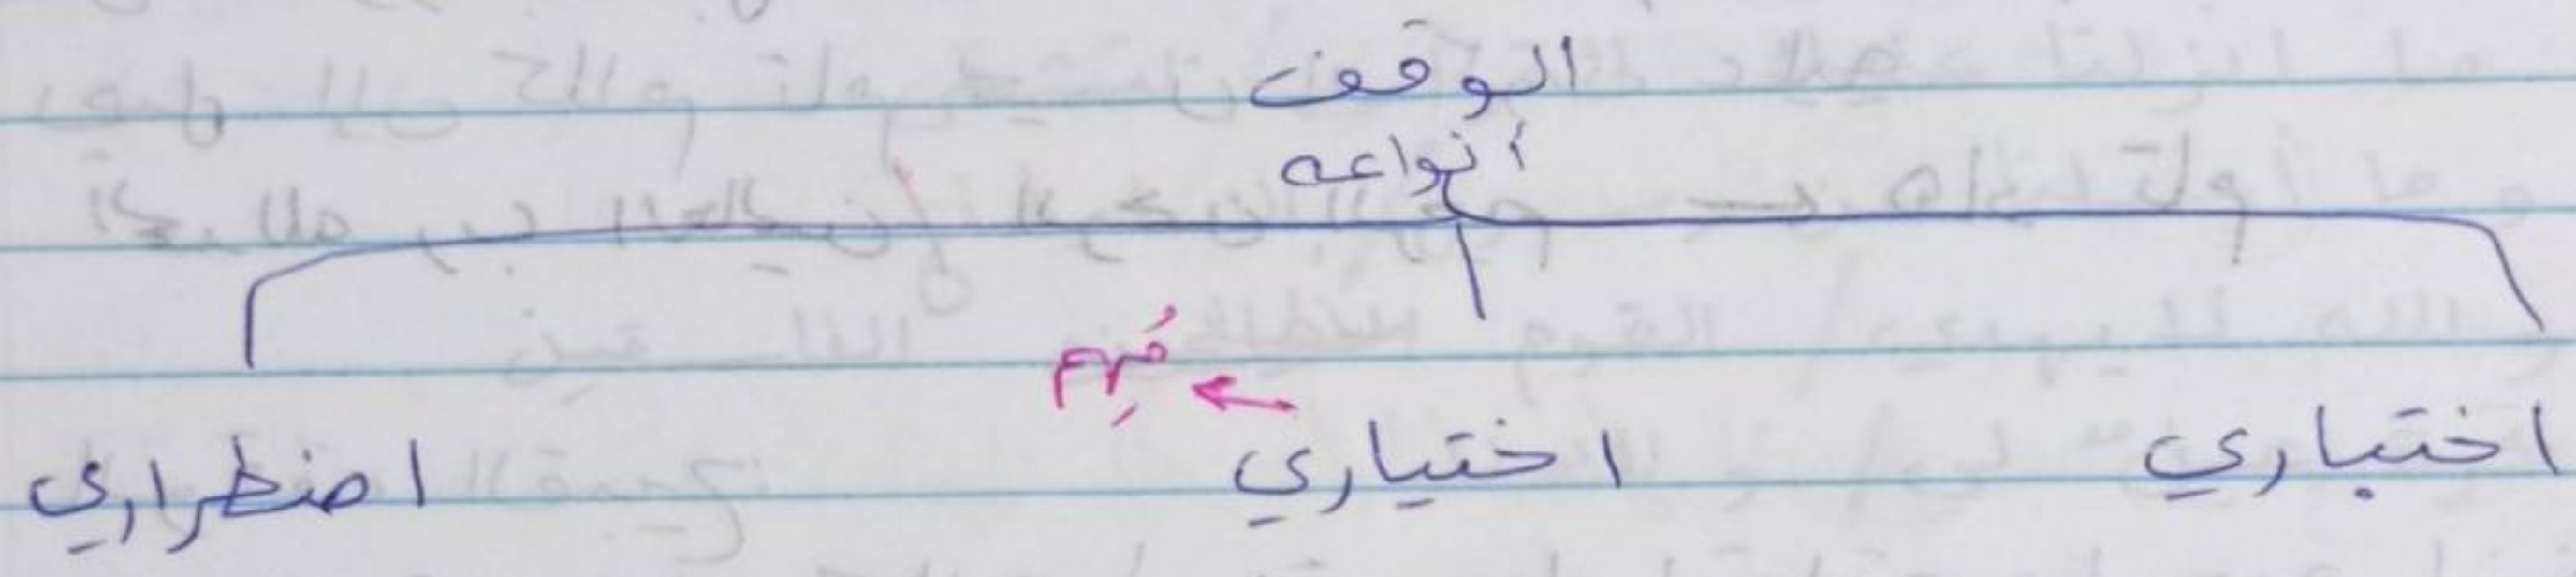 الوقف
أنواعه
اختباري اختياري ← مُهِم
اضطراري